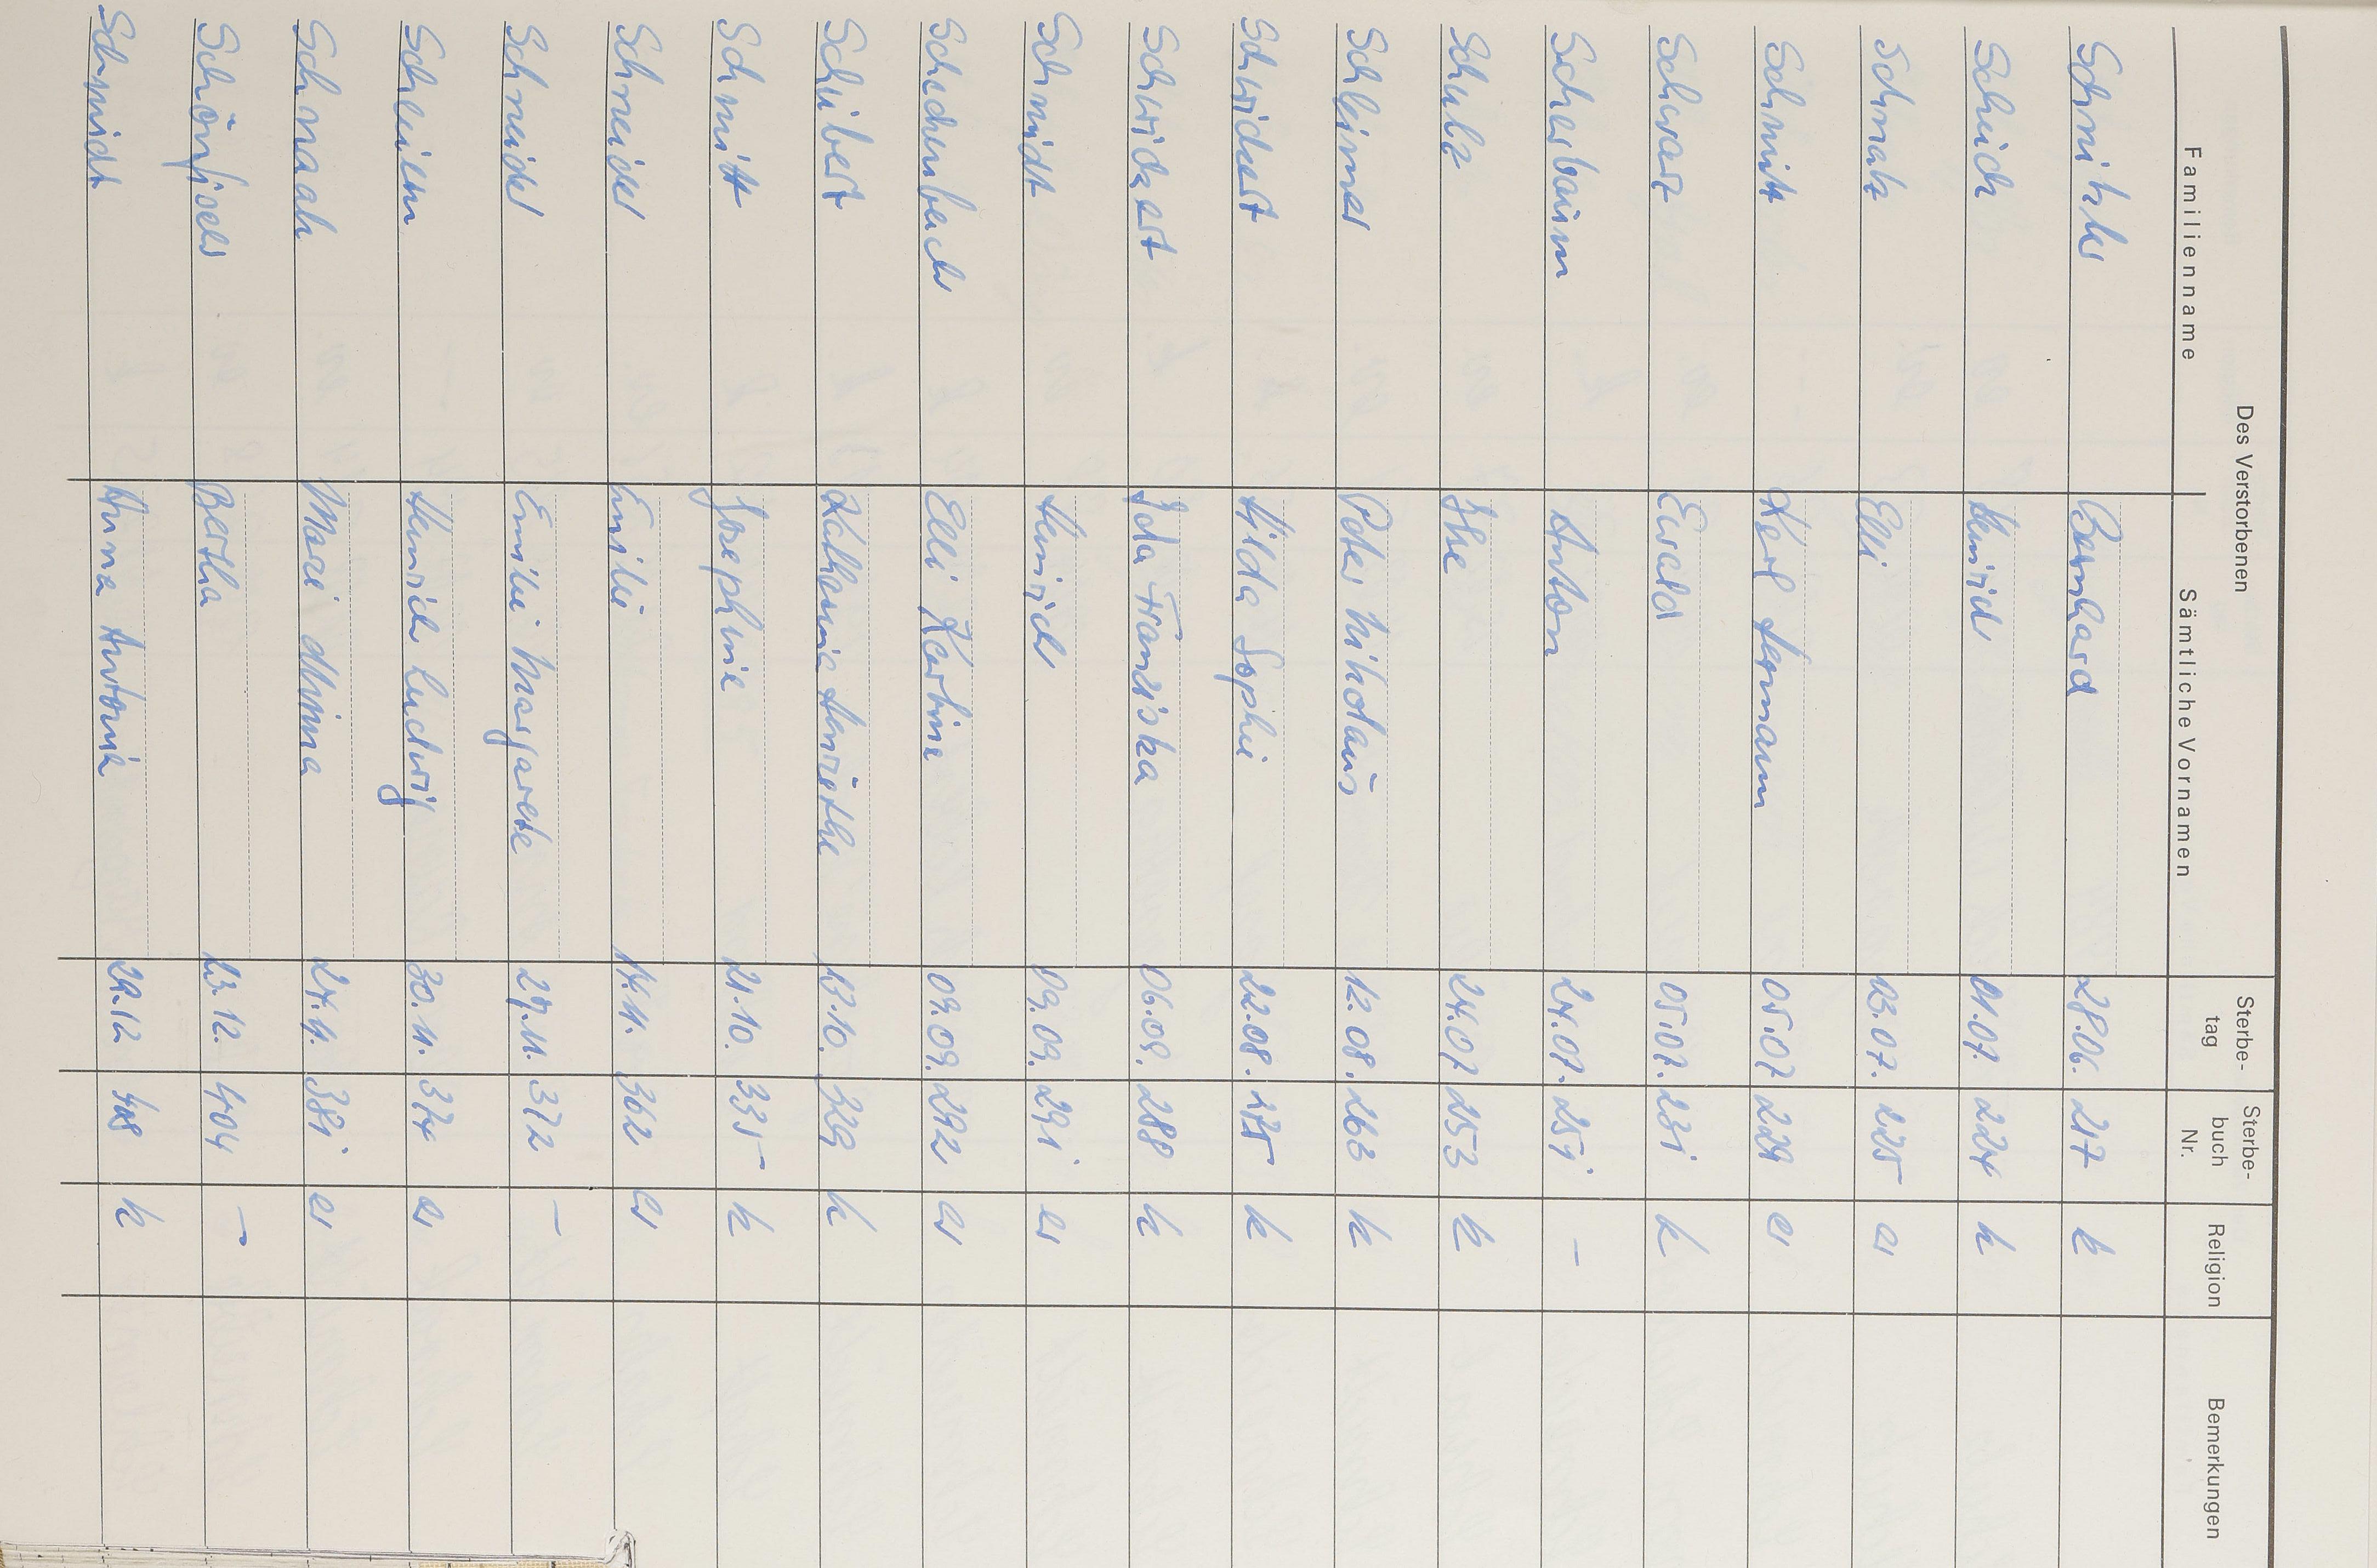 Des Verstorbenen
Familienname Sämtliche Vornamen Sterbe-tag Sterbe-buch Nr. Religion Bemerkungen
Schnitzler Bernhard 28.06. 217 k
Scheid Heinrich 01.07. 224 k
Schmalz Elli 03.07. 225 ev
Schmitt Karl Hermann 05.07 229 ev
Schwarz Ewald 05.07. 231 k
Scherbaum Anton 24.07. 251 –
Schulz Ilse 24.07 253 k
Schleimer Peter Nikolaus 12.08. 263 k
Schwickert Hilda Sophie 22.08. 275 k
Schwickert Ida Franziska 06.09. 288 k
Schmidt Heinrich 09.09. 291 ev
Schechenbach Elli Karoline 09.09. 292 ev
Schubert Katharina Henriethe 13.10. 329 k
Schmitt Josephine 21.10. 335 k
Schneider Emilie 14.11. 362 ev
Schneider Emilie Margarete 27.11. 372 –
Heinrich Ludwig 30.11. 374 ev
Schnaak 24.11. 381 ev
Bertha 13.12. 404 –
Schmidt Anna Antonie 29.12 k